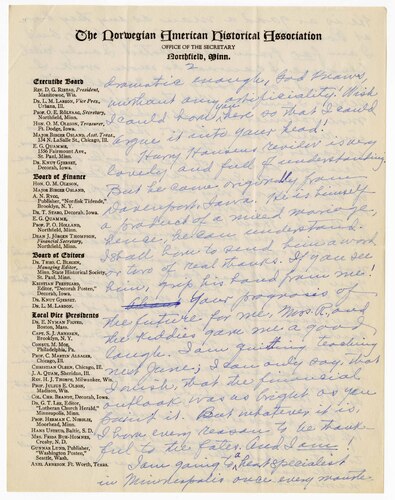 The Norwegian American Historical Association
OFFICE OF THE SECRETARY
Northfield, Minn.
2
Executive Board
REV. D. G. RISTAD, President,
Manitowoc, Wis.
DR. L. M. LARSON, Vice Pres.,
Urbana, Ill.
PROF. O. E. RÖLVAAG, Secretary,
Northfield, Minn.
HON. O. M. OLESON, Treasurer,
Ft. Dodge, Iowa.
MAJOR BIRGER OSLAND, Asst. Treas.,
134 N. LaSalle St., Chicago, Ill.
E. G. QUAMME,
1556 Fairmont Ave.,
St. Paul, Minn.
DR. KNUT GJERSET,
Decorah, Iowa.
Board of Finance
HON. O. M. OLESON,
MAJOR BIRGER OSLAND,
A. N. RYGG,
Publisher, "Nordisk Tidende",
Brooklyn, N. Y.
DR. T. STABO, Decorah, Iowa.
E. G. QUAMME,
PROF. P. O. HOLLAND,
Northfield, Minn.
DEAN J. JÖRGEN THOMPSON,
Financial Secretary,
Northfield, Minn.
Board of Editors
DR. THEO. C. BLEGEN,
Managing Editor,
Minn. State Historical Society,
St. Paul, Minn.
KRISTIAN PRESTGARD,
Editor, "Decorah Posten,"
Decorah, Iowa.
DR. KNUT GJERSET,
DR. L. M. LARSON.
Local Vice Presidents
DR. E. NYMAN FIGVED,
Boston, Mass.
CAPT. S. J. ARNESEN,
Brooklyn, N. Y.
CONSUL M. MOE,
Philadelphia, Pa.
PROF. C. MARTIN ALSAGER,
Chicago, Ill.
CHRISTIAN OLSEN, Chicago, Ill.
J. A. QUAM, Sheridan, Ill.
REV. H. J. THORPE, Milwaukee, Wis.
PROF. JULIUS E. OLSON,
Madison, Wis.
COL. CHR. BRANDT, Decorah, Iowa.
DR. G. T. LEE, Editor
"Lutheran Church Herald,"
Minneapolis, Minn.
PROF. HERMAN C. NORDLIE,
Moorhead, Minn.
HANS USTRUD, Baltic, S. D.
MRS. FRIDA BUE-HOMNES,
Crosby, N. D.
GUNNAR LUND, Publisher
"Washington Posten",
Seattle, Wash.
AXEL ARNESON, Ft. Worth, Texas.
dramatic enough, God knows,
without any superficiality. Wish
I could have you here so that I could
argue it into your head!
Harry Hansens review is very
lovely and full of understanding
But he came originally from
Davenport, Iowa. He is himself
a product of a mixed marriage,
hence he can understand.
I shall have to send him a word
or two of real thanks. If you see
him, grip his hand from me!
Your prognosis of
the future for me, Mrs R. and
the kiddies gave me a good
laugh. I am quitting teaching
next June; I can only say that
I wish that the financial
outlook was as bright as you
paint it. But whatever it is,
I have every reason to be thank-
ful to the Fates. And I am!
I am going to a heat specialist
in Minneapolis once every month